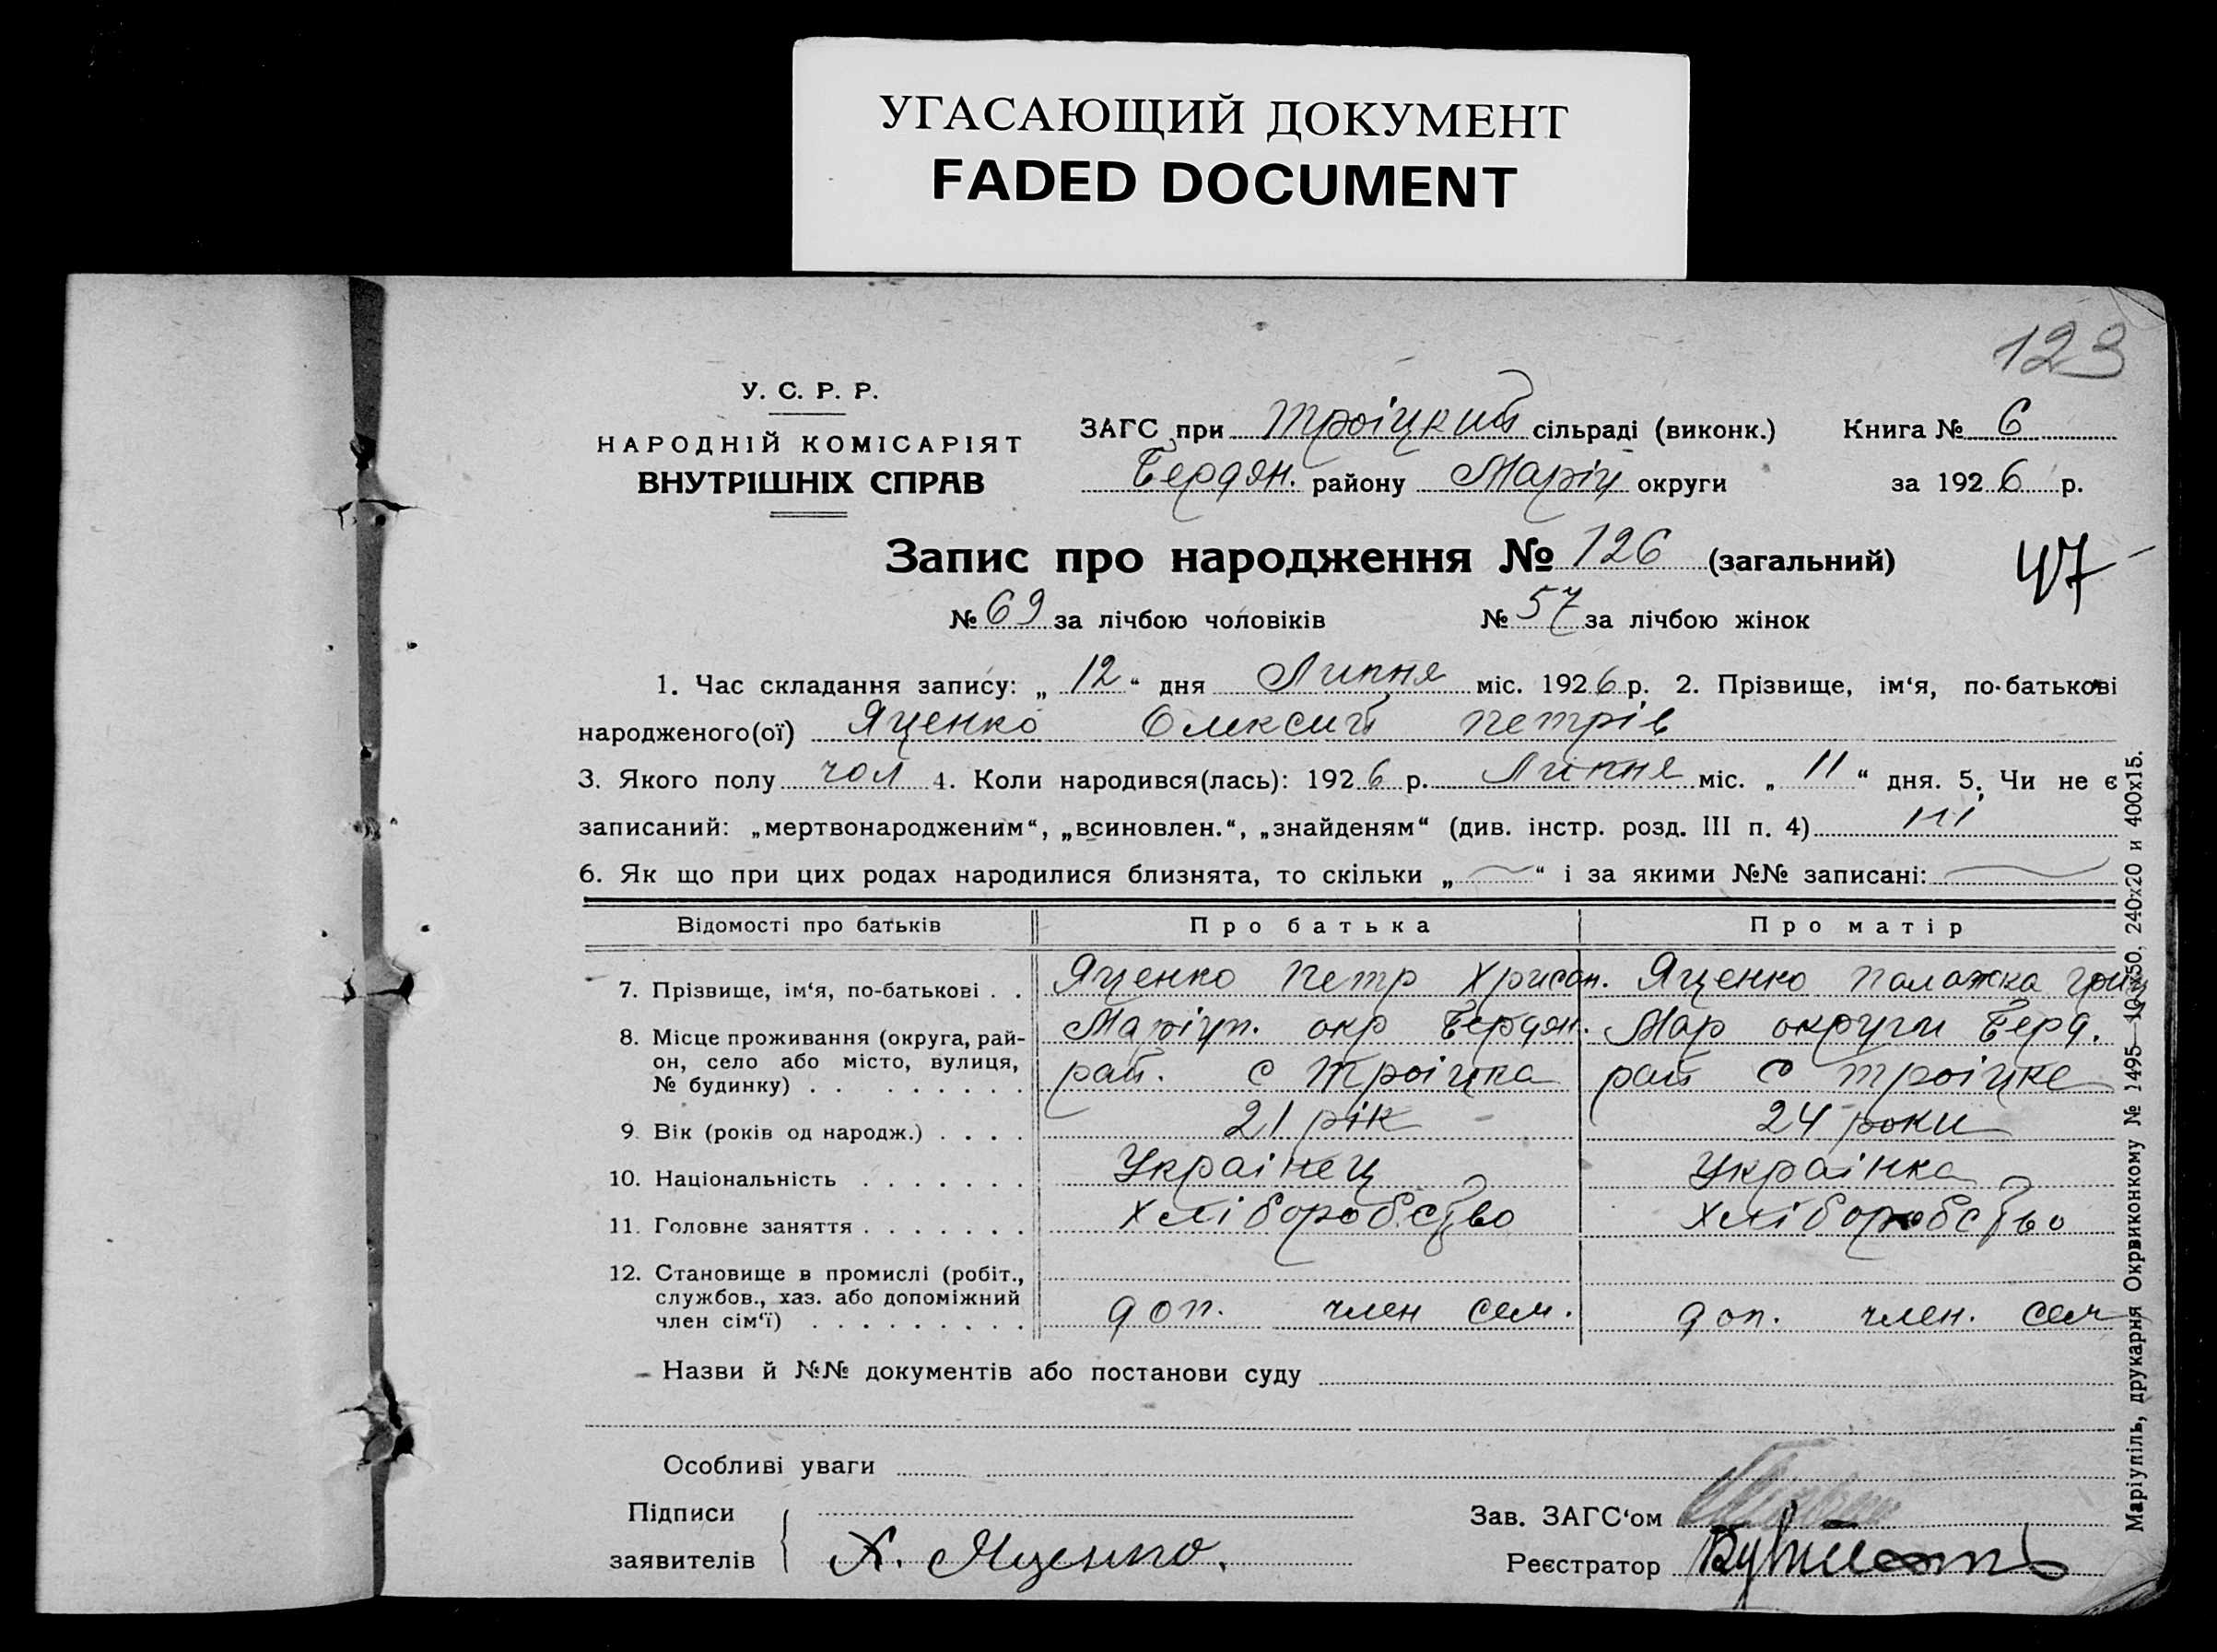 УГАСАЮЩИЙ ДОКУМЕНТ
FADED DOCUMENT
123
У. С. Р. Р.
НАРОДНІЙ КОМІСАРІЯТ
ВНУТРІШНІХ СПРАВ
ЗАГС при Троіцкий сільраді (виконк.) Книга № 6
Бердян. району Маріу округи за 1926 р.
Запис про народження № 126 (загальний)
47
№ 69 за лічбою чоловіків № 57 за лічбою жінок
1. Час складання запису: „ 12 “ дня Липня міс. 1926 р. 2. Прізвище, ім‘я, по-батькові
народженого(ої) Яценко Олексий Петрів
3. Якого полу чол 4. Коли народився(лась): 1926 р. Липня міс. „ 11 “ дня. 5. Чи не є
записаний: „мертвонародженим“, „всиновлен.“, „знайденям“ (див. інстр. розд. III п. 4)
6. Як що при цих родах народилися близнята, то скільки „ “ і за якими №№ записані:
Відомості про батьків Про батька Про матір
7. Прізвище, ім‘я, по-батькові . . Яценко Петр Хрисан. Яценко Палажка Гриц
8. Місце проживання (округа, рай- Маріуп. окр Бердян. Мар округи Берд.
он, село або місто, вулиця, рай. с Троіцка рай с Троіцке
№ будинку) . . . . . . . .
9. Вік (років од народж.) . . . . 21 рік 24 роки
10. Національність . . . . . . . Украінец Украінка
11. Головне заняття . . . . . . . Хліборобство Хліборобство
12. Становище в промислі (робіт.,
службов., хаз. або допоміжний
член сім‘ї) . . . . . . . . . доп. член сем. доп. член. сем
Назви й №№ документів або постанови суду
Особливі уваги
Підписи Зав. ЗАГС‘ом
заявителів Х. Яценко. Реєстратор
Маріупіль, друкарня Окрвиконкому № 1495—10х50, 240х20 и 400х15.